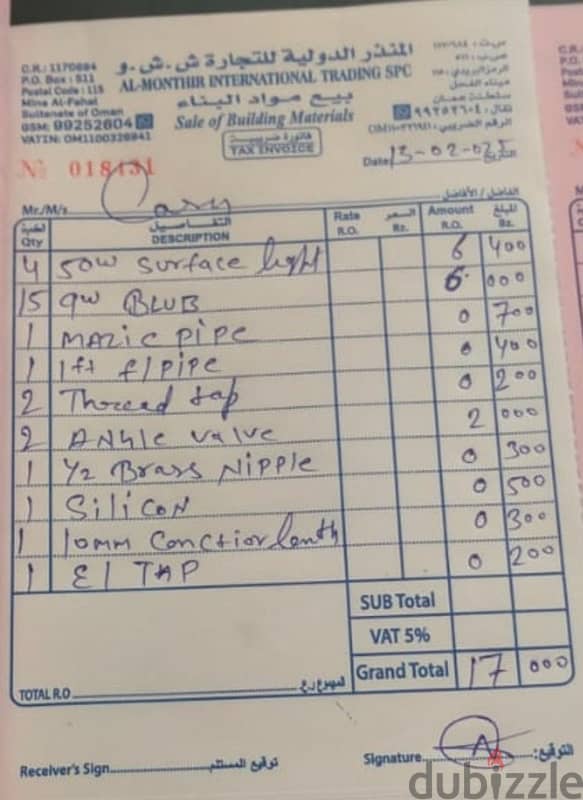 المنذر الدولية للتجارة ش.ش.و
AL-MONTHIR INTERNATIONAL TRADING SPC
بيع مواد البناء
Sale of Building Materials
فاتورة ضريبية
TAX INVOICE
C.R.: 1170684
P.O. Box : 511
Postal Code : 115
Mina Al-Fahal
Sultanate of Oman
GSM: 99252604
VATIN: OM1100326841
ص.ب:
الرمز البريدي:
ميناء الفحل
سلطنة عمان
نقال: ٩٩٢٥٢٦٠٤
الرقم الضريبي:
№ 018431
Date: 13-02-025 التاريخ
Mr./M/s Cash الفاضل / الأفاضل
الكمية Qty التفاصيل DESCRIPTION Rate R.O. السعر Bz. Amount R.O. المبلغ Bz.
4 50w Surface light 6 400
15 9w BLUB 6 000
1 MAZIC PIPE 0 700
1 1ft f/pipe 0 400
2 Thread tap 0 200
2 ANgle valve 2 000
1 1/2 Brass Nipple 0 300
1 SiliCON 0 500
1 10mm Conctior lenth 0 300
1 El TAP 0 200
SUB Total
VAT 5%
Grand Total 17 000
TOTAL R.O المجموع ر.ع
Receiver's Sign. توقيع المستلم
Signature التوقيع:
dubizzle